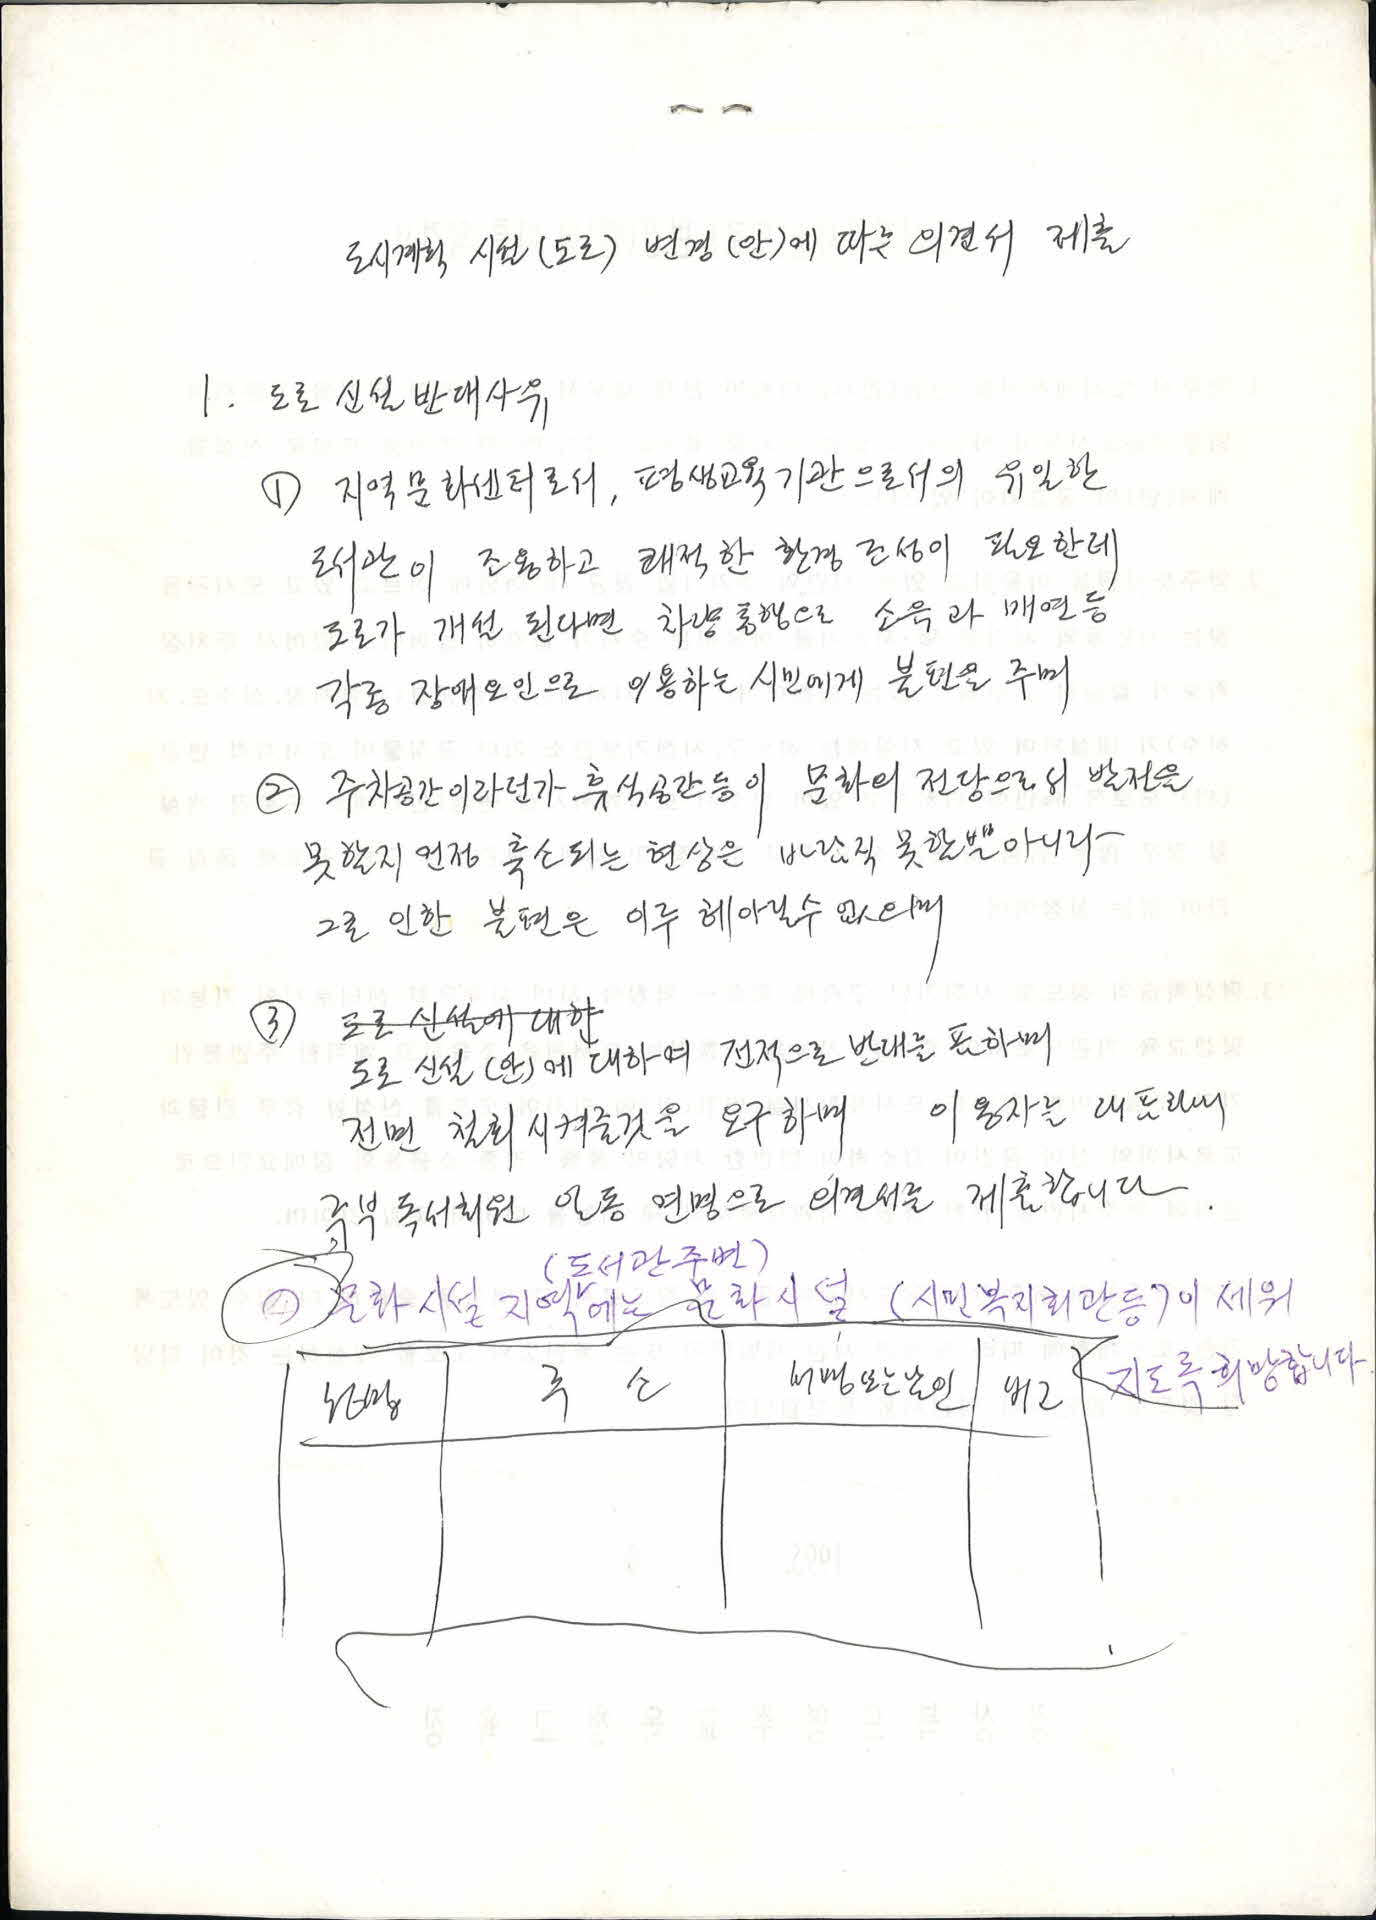 도시계획 시설(도로) 변경(안)에 따른 의견서 제출
1. 도로 신설 반대사유
① 지역문화센터로서, 평생교육기관으로서의 유일한
도서관이 조용하고 쾌적한 환경 조성이 필요한데
도로가 개설 된다면 차량통행으로 소음과 매연등
각종 장애요인으로 이용하는 시민에게 불편을 주며
② 주차공간이라던가 휴식공간등이 문화의 전당으로서 발전을
못할지언정 축소되는 현상은 바람직 못할뿐아니라
그로 인한 불편은 이루 헤아릴수 없으며
③ 도로 신설에 대한
도로 신설(안)에 대하여 전적으로 반대를 표하며
전면 철회시켜줄것을 요구하며 이용자를 대표하여
주부독서회원 일동 연명으로 의견서를 제출합니다.
(도서관주변)
④ 문화시설 지역에는 문화시설 (시민복지회관등)이 세워
지도록 희망합니다.
성명 주소 서명또는날인 비고